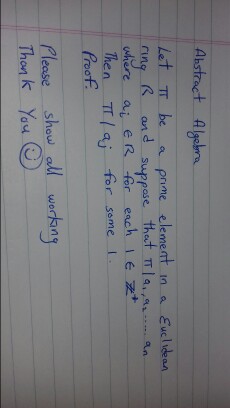 Abstract Algebra
Let π be a prime element in a Euclidean
ring R and suppose that π | a₁, a₂ ..... aₙ
where aᵢ ∈ R for each 1 ∈ ℤ⁺
Then π | aⱼ for some 1.
Proof.
Please show all working
Thank You ☺